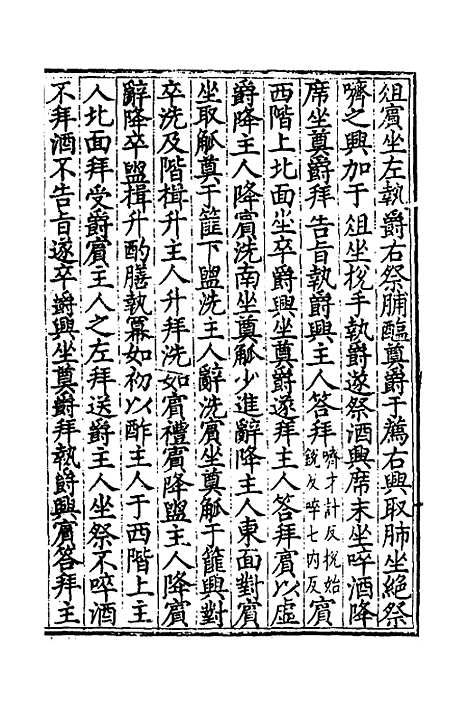 俎賔坐左執爵右祭脯醢奠爵于薦右興取肺坐絶祭
嚌之興加于俎坐挩手執爵遂祭酒興席末坐啐酒降
席坐奠爵拜告旨執爵興主人答拜嚌才計反挩始銳反啐七内反賔
西階上北面坐卒爵興坐奠爵遂拜主人答拜賔以虚
爵降主人降賔洗南坐奠觚少進辭降主人東面對賔
坐取觚奠于篚下盥洗主人辭洗賔坐奠觚于篚興對
卒洗及階揖升主人升拜洗如賔禮賔降盥主人降賔
辭降卒盥揖升酌膳執冪如初以酢主人于西階上主
人北面拜受爵賔主人之左拜送爵主人坐祭不啐酒
不拜酒不告旨遂卒爵興坐奠爵拜執爵興賔答拜主